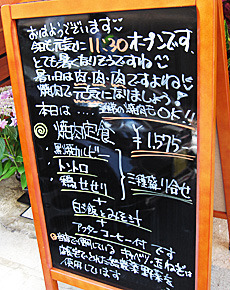 おはようございます
今日も元気に11:30オープンです。
とても暑くなりそうですね
暑い日は肉・肉・肉ですよね
焼肉で元気になりましょう!
本日は OK!!
焼肉定食 ¥1,575
黒焼カルビー
トントロ
鶏せせり
三種盛り合せ
+
白飯とみそ汁
+
アフターコーヒー付です
キャベツ、玉ねぎは
使用しています